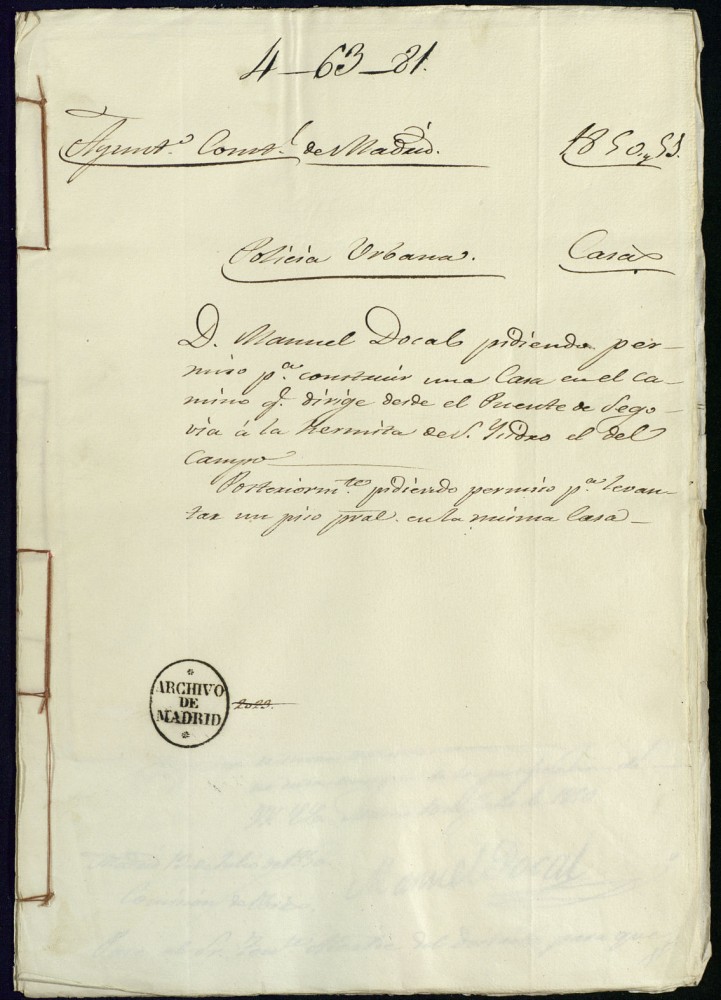 4-63-81.
Ayunt.º Const.l de Madrid. 1850 y 53.
Policia Urbana. Casas
D. Manuel Docal pidiendo per-
miso p.ª construir una Casa en el ca-
mino q.e dirige desde el Puente de Sego-
via á la Hermita de S. Ysidro el del
Campo
Posteriorm.te pidiendo permiso p.ª levan-
tar un piso pral. en la misma Casa
ARCHIVO
DE
MADRID
Manuel Docal